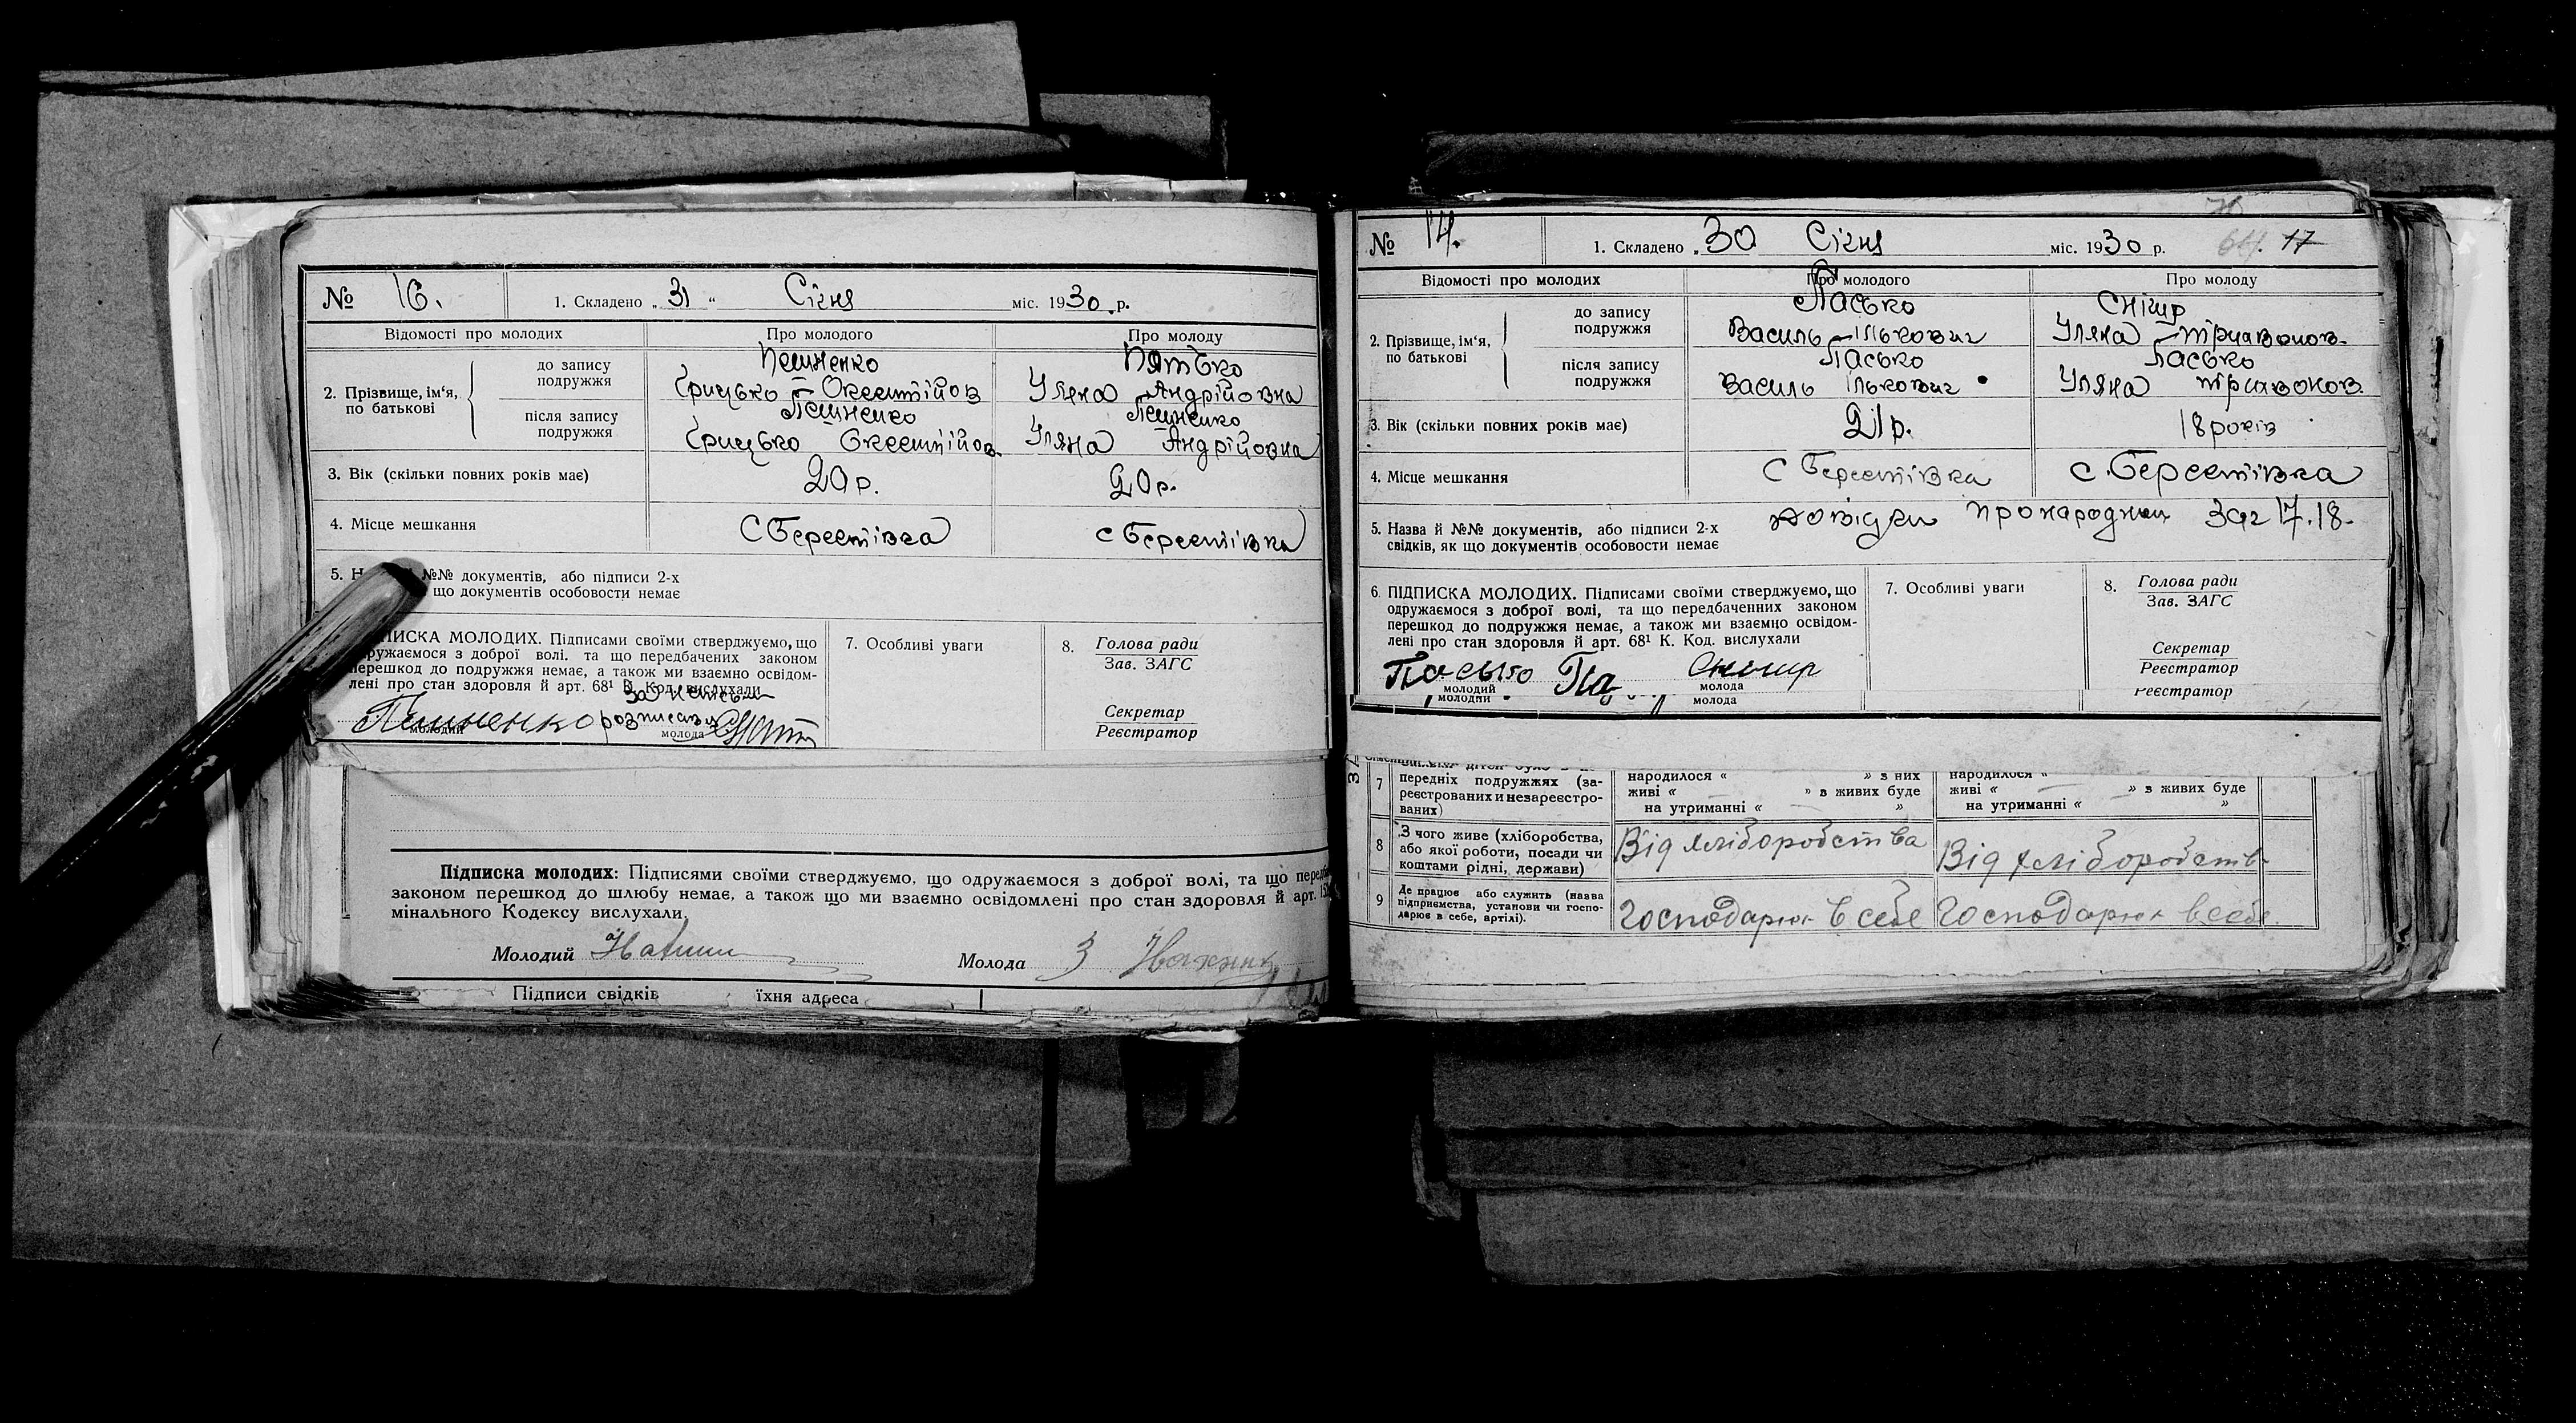 № 16. 1. Складено „ 31 “ Січня міс. 1930 р.
Відомості про молодих Про молодого Про молоду
2. Прізвище, ім‘я, по батькові
до запису подружжя
Пятько
Грицько Уляна Андрійовна
після запису подружжя
Грицько Уляна Андрійовна
3. Вік (скільки повних років має) 20 р. 20 р.
4. Місце мешкання С Берестівка с Берестівка
5. №№ документів, або підписи 2-х
що документів особовости немає
ПИСКА МОЛОДИХ. Підписами своїми стверджуємо, що
ружаємося з доброї волі. та що передбачених законом
перешкод до подружжя немає, а також ми взаємно освідом-
лені про стан здоровля й арт. 68¹ К. Код. вислухали
молодий молода
7. Особливі уваги
8. Голова ради
Зав. ЗАГС
Секретар
Реєстратор
Підписка молодих: Підписями своїми стверджуємо, що одружаємося з доброї волі, та що
законом перешкод до шлюбу немає, а також що ми взаємно освідомлені про стан здоровля й арт.
мінального Кодексу вислухали.
Молодий Молода
Підписи свідків їхня адреса
№ 14. 1. Складено „ 30 Січня міс. 1930 р. 17
Відомості про молодих Про молодого Про молоду
2. Прізвище, ім‘я, по батькові
до запису подружжя
Пасько Снігир
ВасильІлькович Уляна
після запису подружжя
Пасько Пасько
ВасильІлькович Уляна
3. Вік (скільки повних років має) 21 р. 18 років
4. Місце мешкання С Берестівка с. Берестівка
5. Назва й №№ документів, або підписи 2-х
свідків, як що документів особовости немає
довідки 17.18.
6. ПІДПИСКА МОЛОДИХ. Підписами своїми стверджуємо, що
одружаємося з доброї волі, та що передбаченних законом
перешкод до подружжя немає, а також ми взаємно освідом-
лені про стан здоровля й арт. 68¹ К. Код. вислухали
Пасько
молодий молода
молодий молода
7. Особливі уваги
8. Голова ради
Зав. ЗАГС
Секретар
Реєстратор
Реєстратор
7 передніх подружжях (за-
реєстрованих и незареєстро-
ваних)
народилося « » з них
живі « » в живих буде
на утриманні « »
народилося «
живі « » в живих буде
на утриманні « »
8 З чого живе (хліборобства,
або якої роботи, посади чи
коштами рідні, держави)
Від хліборобства Від хліборобств
9 Де працює або служить (назва
підприємства, установи чи госпо-
дарює в себе, артілі).
господарює в себе господарює в себе.